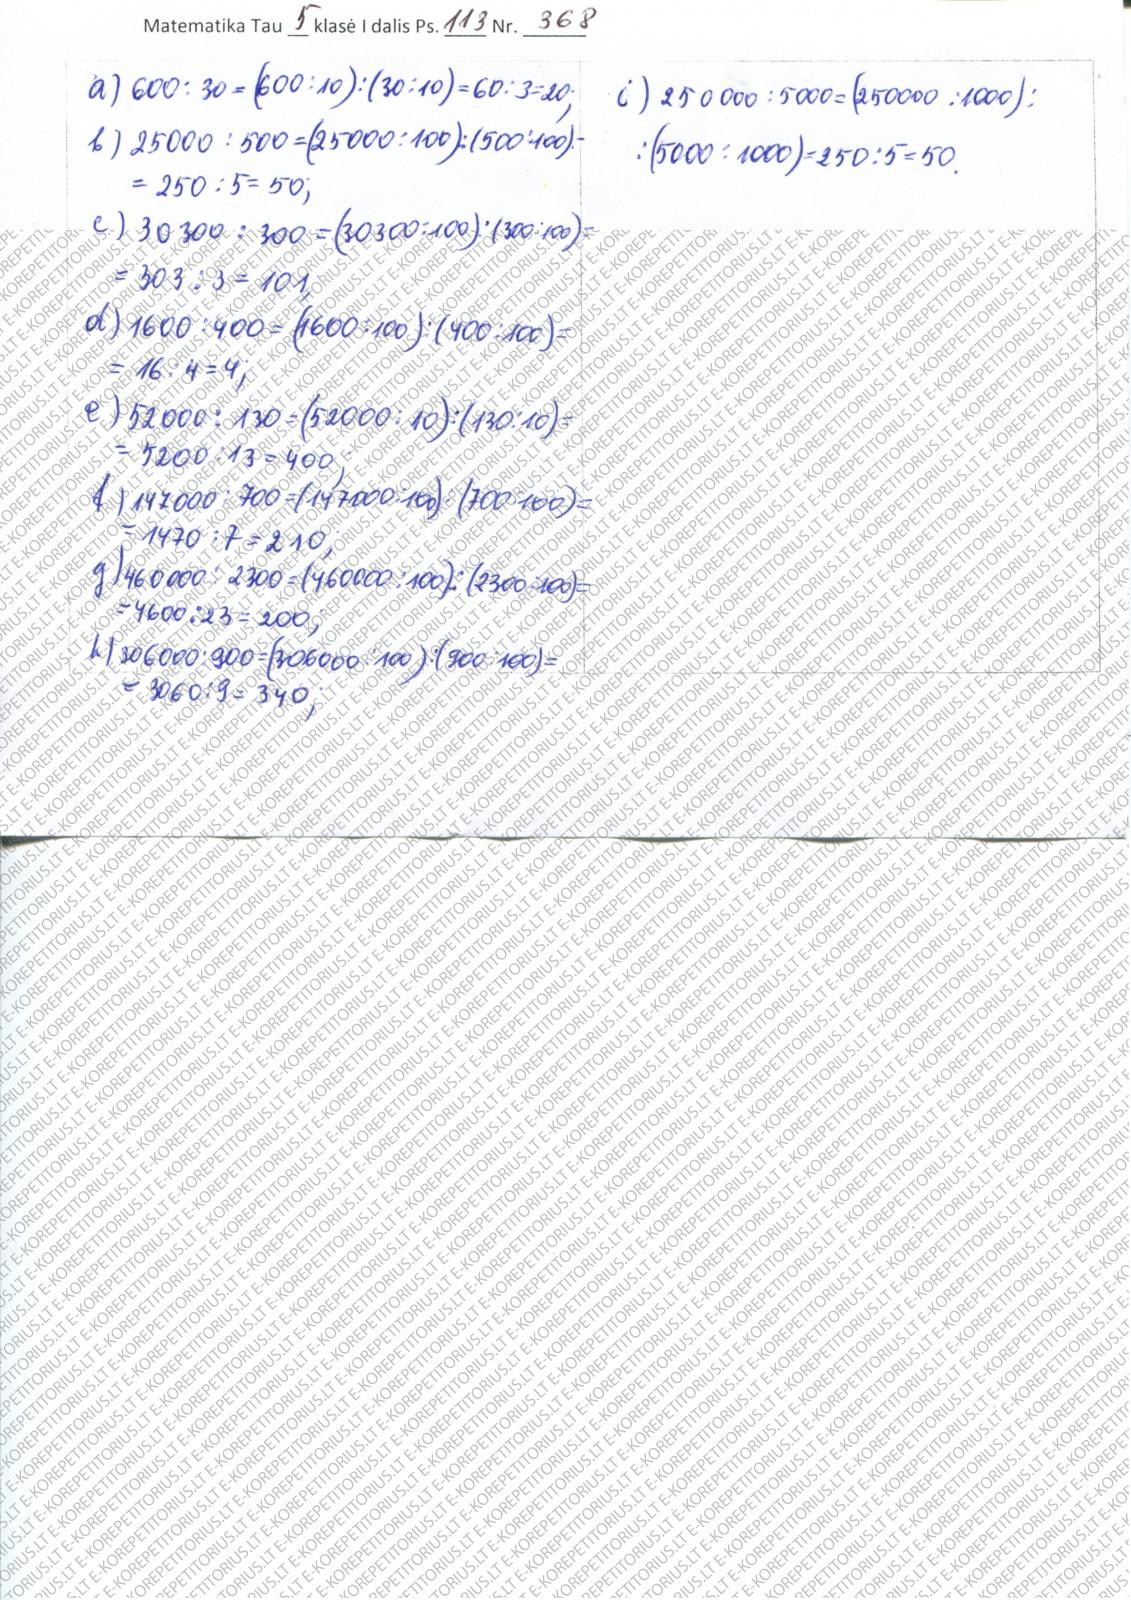 Matematika Tau 5 klasė I dalis Ps. 113 Nr. 368
a) 600 : 30 = (600 : 10) : (30 : 10) = 60 : 3 = 20;
b) 25000 : 500 = (25000 : 100) : (500 : 100) =
= 250 : 5 = 50;
c) 30300 : 300 = (30300 : 100) : (300 : 100) =
= 303 : 3 = 101;
d) 1600 : 400 = (1600 : 100) : (400 : 100) =
= 16 : 4 = 4;
e) 52000 : 130 = (52000 : 10) : (130 : 10) =
= 5200 : 13 = 400;
f) 147000 : 700 = (147000 : 100) : (700 : 100) =
= 1470 : 7 = 210;
g) 460000 : 2300 = (460000 : 100) : (2300 : 100) =
= 4600 : 23 = 200;
h) 306000 : 900 = (306000 : 100) : (900 : 100) =
= 3060 : 9 = 340;
i) 250000 : 5000 = (250000 : 1000) :
: (5000 : 1000) = 250 : 5 = 50.
E-KOREPETITORIUS.LT